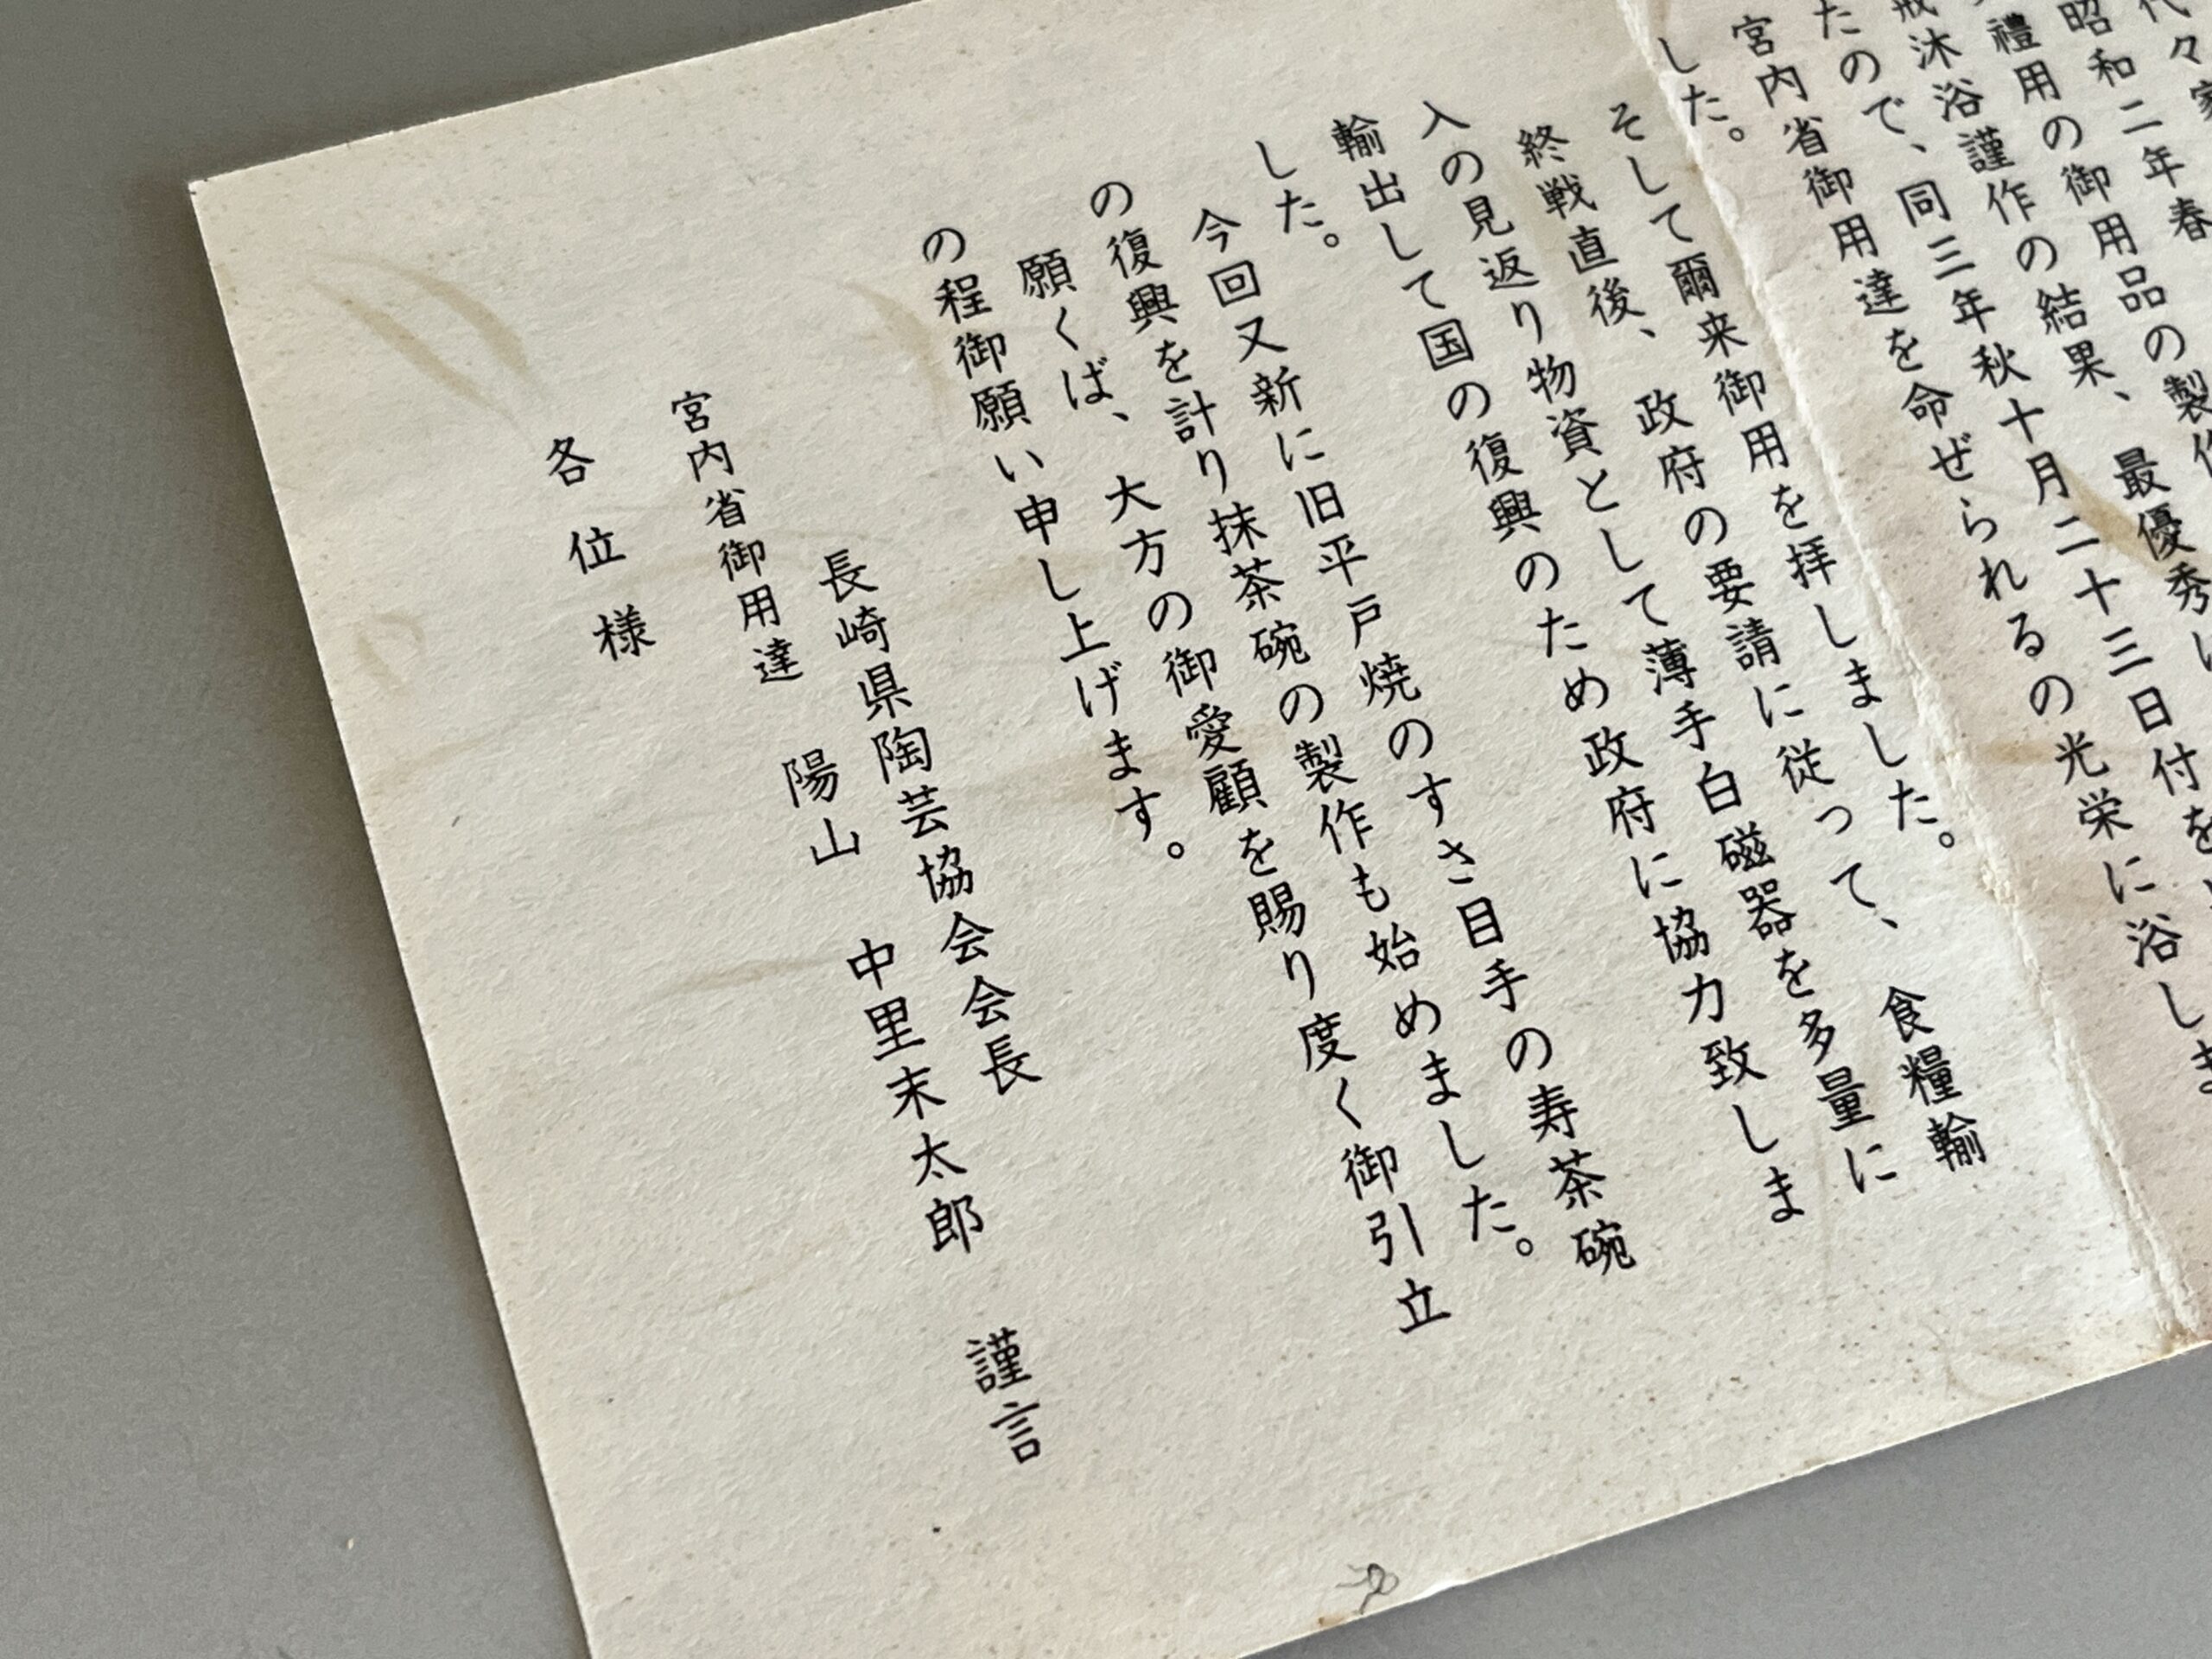 代々家
昭和二年春
禮用の御用品の製作
戒沐浴謹作の結果、最優秀
たので、同三年秋十月二十三日付を
宮内省御用達を命ぜられるの光栄に浴しま
した。
そして爾来御用を拝しました。
終戦直後、政府の要請に従って、食糧輸
入の見返り物資として薄手白磁器を多量に
輸出して国の復興のため政府に協力致しま
した。
今回又新に旧平戸焼のすさ目手の寿茶碗
の復興を計り抹茶碗の製作も始めました。
願くば、大方の御愛顧を賜り度く御引立
の程御願い申し上げます。
長崎県陶芸協会会長
宮内省御用達 陽山 中里末太郎 謹言
各位様